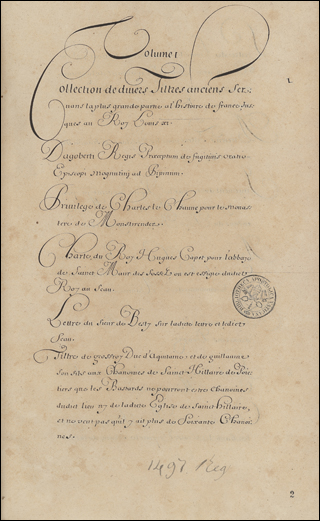 Volume I
Collection de divers Tiltres anciens Ser=
uans la plus grande partie a l'histoire de france Jus
ques au Roy Louis XI.
Dagoberti Regis Præceptum de fugitivis
Episcopi Moguntinj ad Bipinum.
Priuilege de Charles le Chauue pour le monas
tere de Monstirender.
Charte du Roy Hugues Capet pour l'abbaye
de Sainct Maur des Fossez ou est le signe dudict
Roy au Seau.
Lettre du Sieur de Besly sur ladicte lettre et ledict
Seau.
Tiltre de geoffroy Duc d'Aquitaine et de guillaume
son filz aux Chanoines de Sainct Hillaire de Poic
tiers que les Bastards ne pourront estre Chanoines
dudit lieu ny de ladicte Eglise de Sainct Hillaire,
et ne veut pas qu'il y ait plus de Soixante Chanoi
nes.
1497 Reg
2